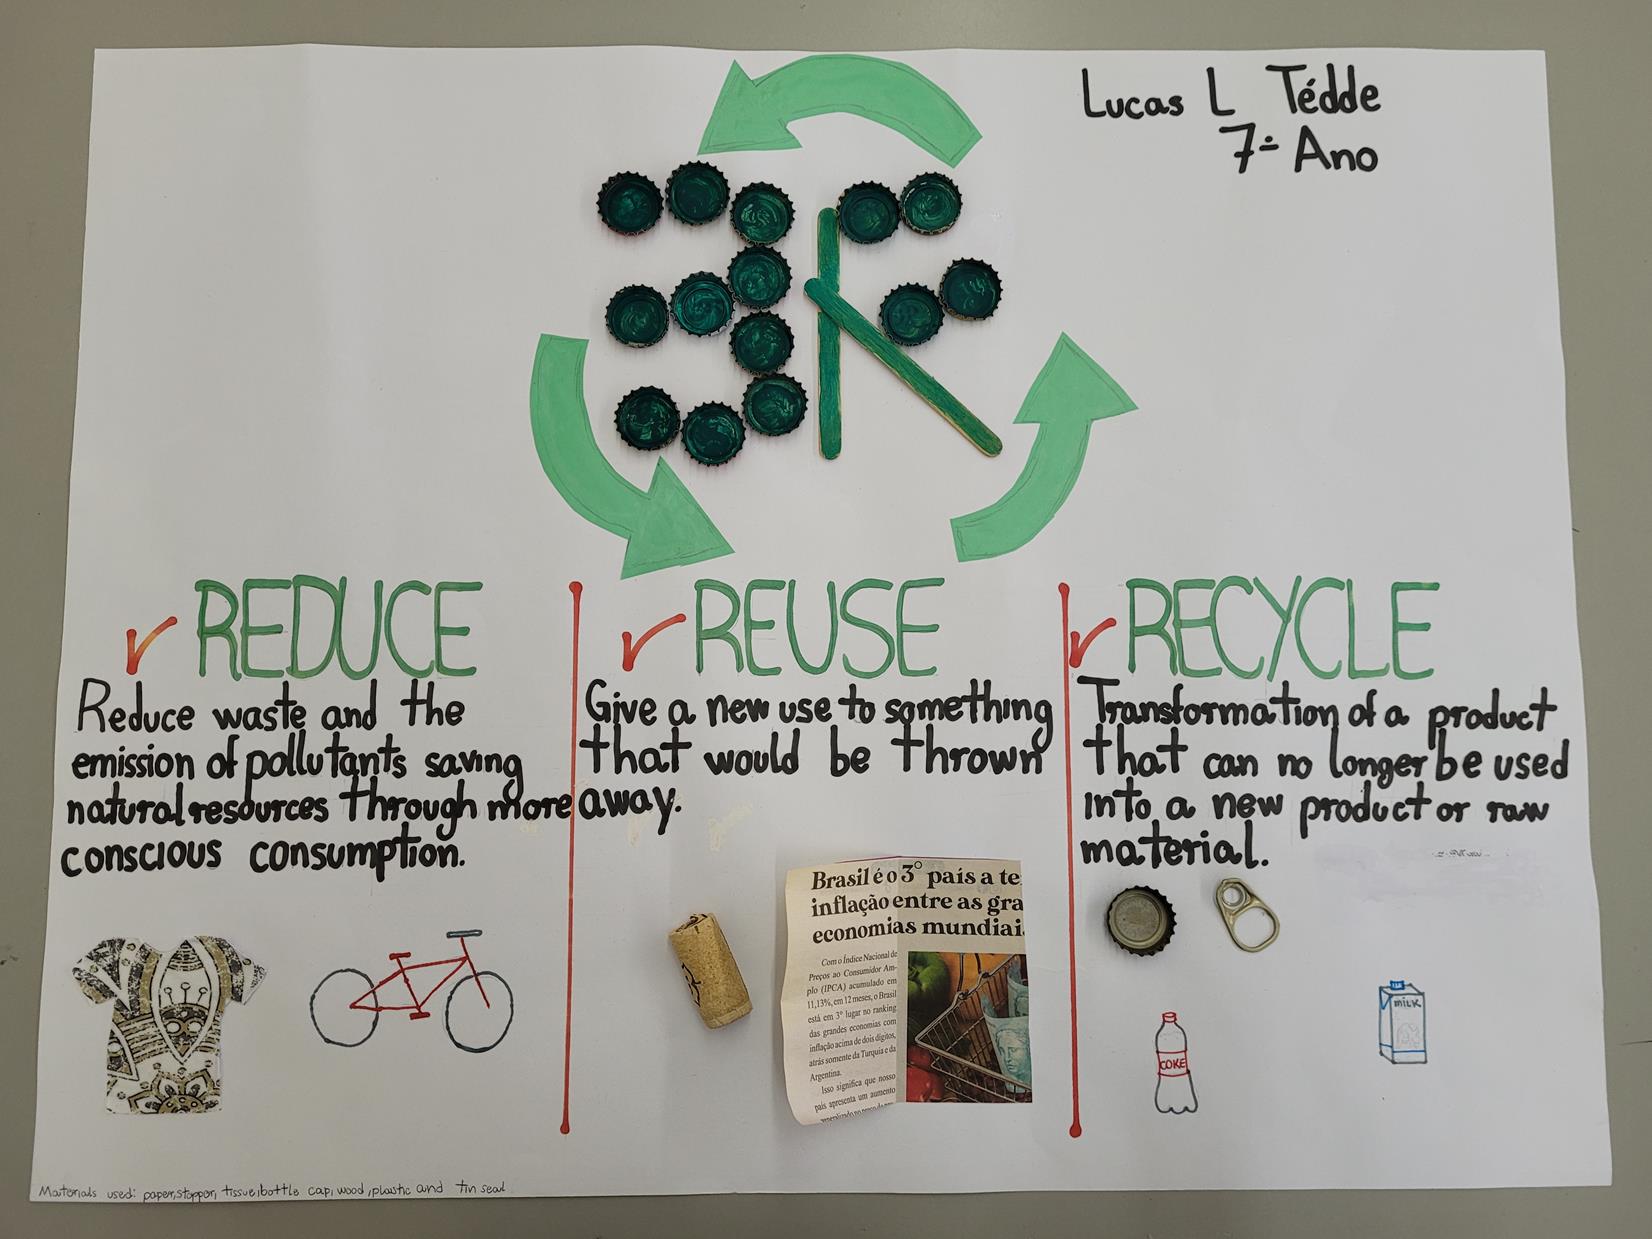 Lucas L Tédde
7º Ano
3R
REDUCE
Reduce waste and the
emission of pollutants saving
natural resources through more
conscious consumption.
REUSE
Give a new use to something
that would be thrown
away.
Brasil é o 3º país a te
inflação entre as gra
economias mundiai
Com o Índice Nacional de
Preços ao Consumidor Am-
plo (IPCA) acumulado em
11,13%, em 12 meses, o Brasil
está em 3º lugar no ranking
das grandes economias com
inflação acima de dois dígitos,
atrás somente da Turquia e da
Argentina.
Isso significa que nosso
país apresenta um aumento
RECYCLE
Transformation of a product
that can no longer be used
into a new product or raw
material.
COKE
MILK
Materials used: paper, stopper, tissue, bottle cap, wood, plastic and tin seal